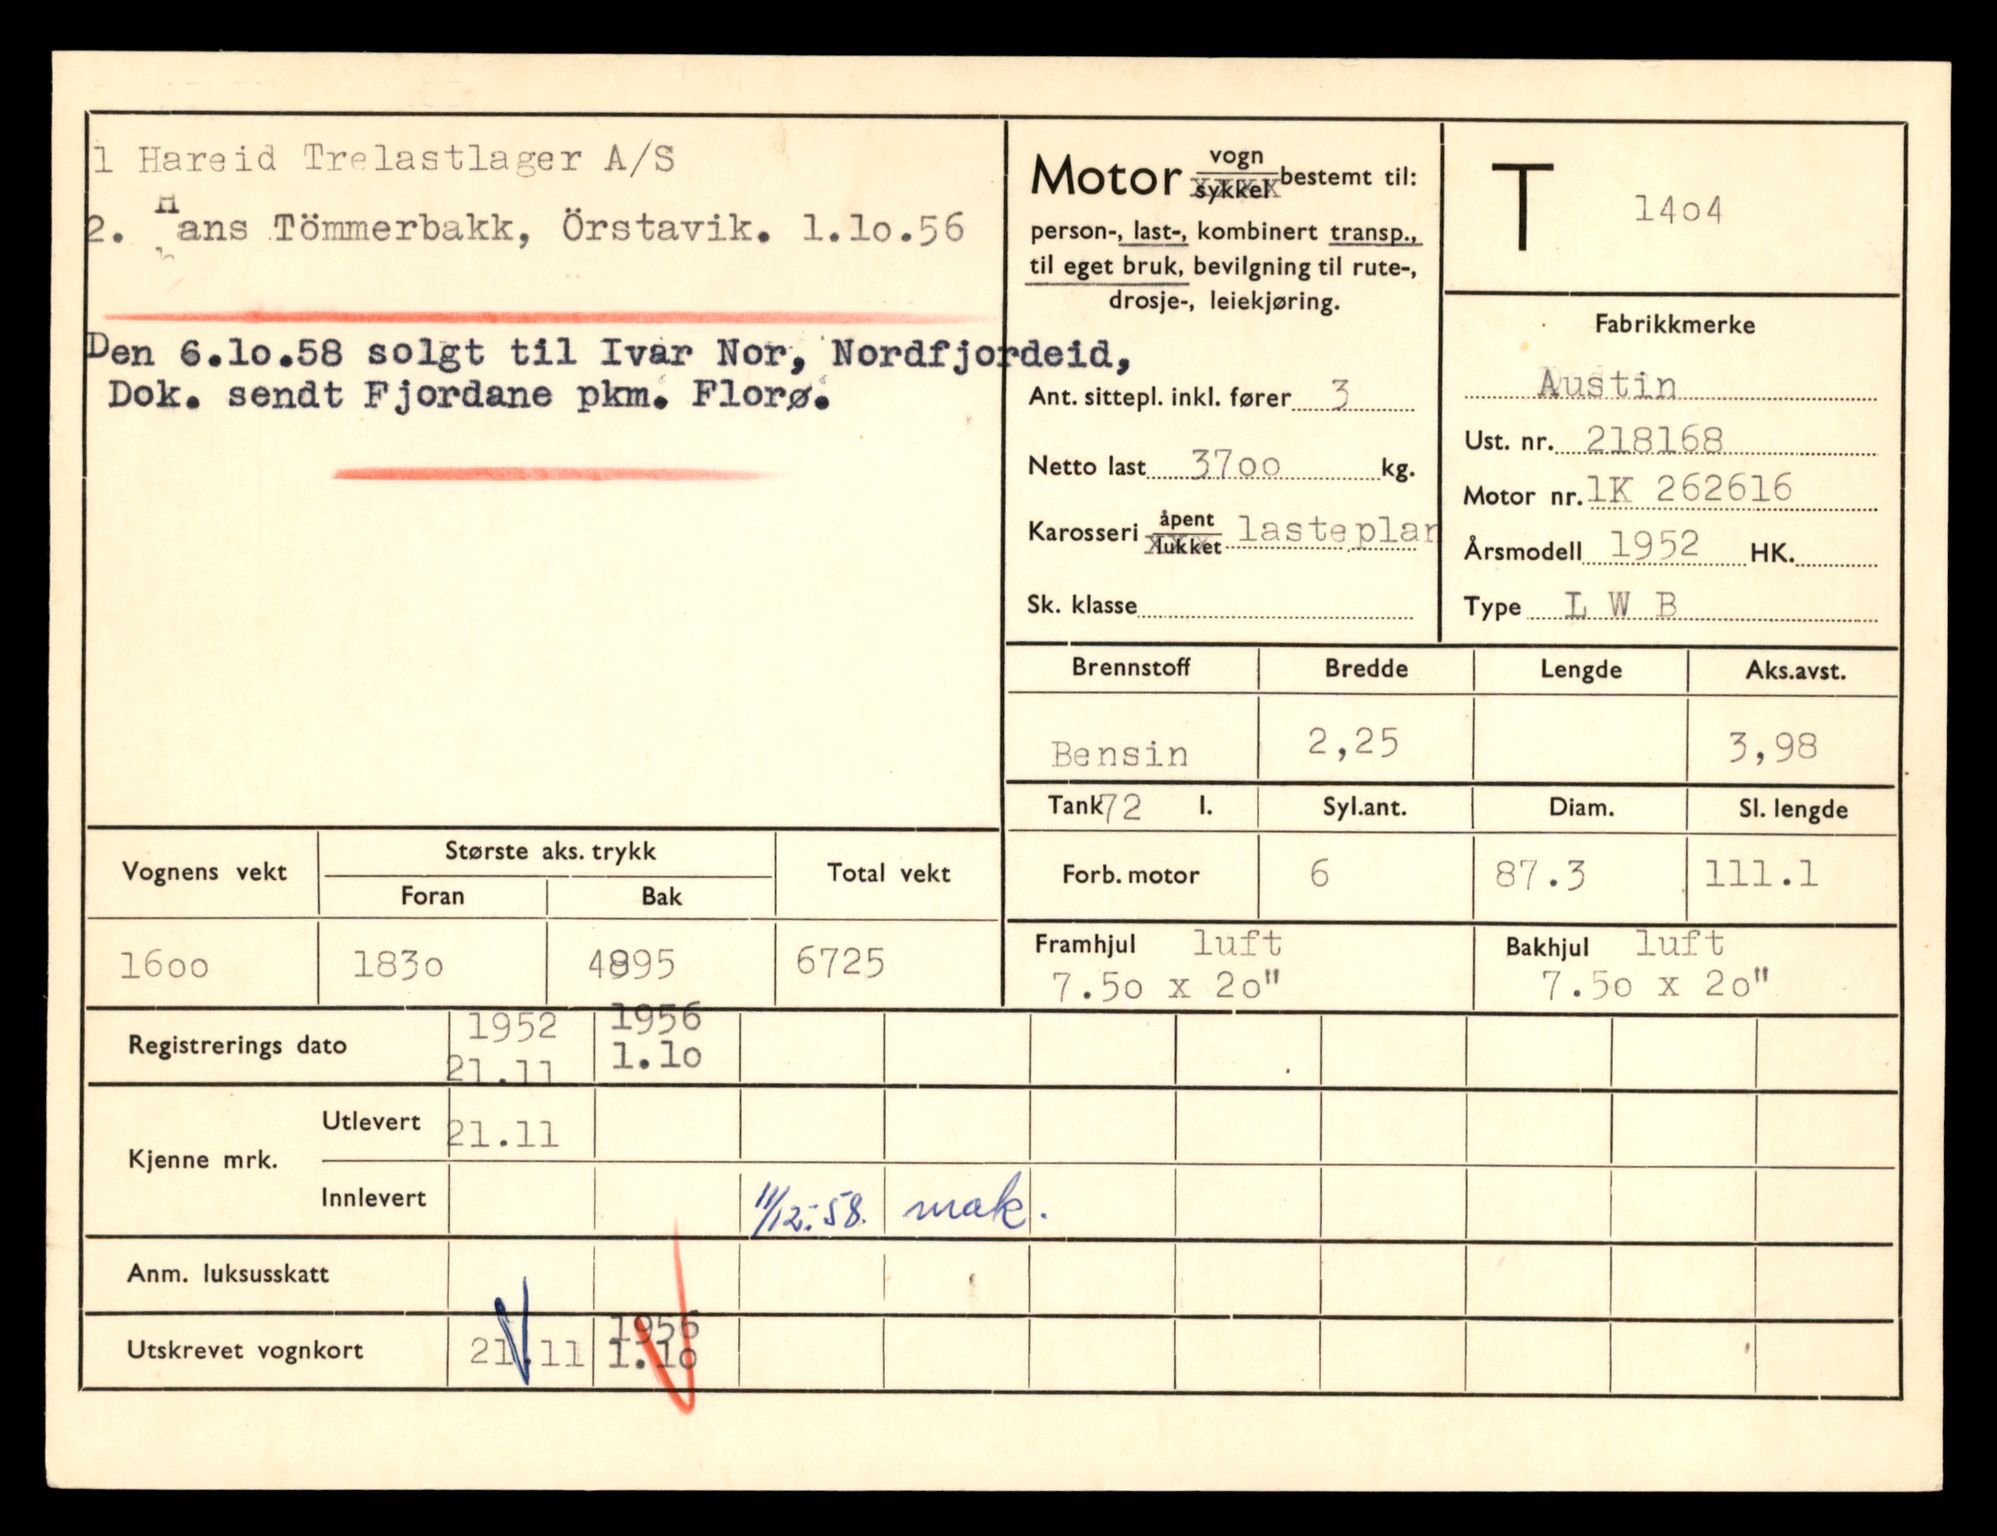 1 Hareid Trelastlager A/S
2. Hans Tömmerbakk, Örstavik. 1.10.56
Den 6.10.58 solgt til Ivar Nor, Nordfjordeid,
Dok. sendt Fjordane pkm. Florø.
Motor vogn sykkel bestemt til:
person-, last-, kombinert transp.,
til eget bruk, bevilgning til rute-,
drosje-, leiekjøring.
Ant. sittepl. inkl. fører 3
Netto last 3700 kg.
Karosseri åpent lukket lasteplan
Sk. klasse
T 1404
Fabrikkmerke
Austin
Ust. nr. 218168
Motor nr. 1K 262616
Årsmodell 1952 HK.
Type L W B
Brennstoff Bredde Lengde Aks.avst.
Bensin 2,25 3,98
Tank 72 l. Syl.ant. Diam. Sl. lengde
Forb. motor 6 87.3 111.1
Framhjul luft Bakhjul luft
7.50 x 20" 7.50 x 20"
Vognens vekt Største aks. trykk Total vekt
Foran Bak
1600 1830 4895 6725
Registrerings dato 1952 1956
21.11 1.10
Kjenne mrk. Utlevert 21.11
Innlevert 11/12.-58. mak.
Anm. luksusskatt
Utskrevet vognkort 21.11 1956
1.10